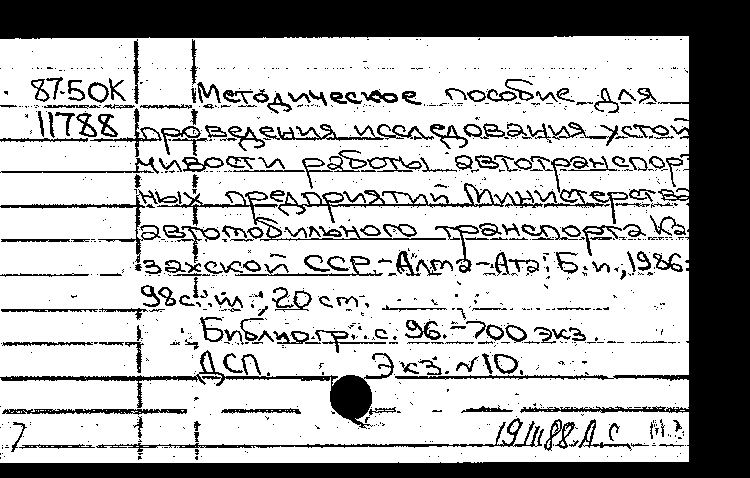 87-50К Методическое пособие для
11788 проведения исследования устой
чивости работы автотранспорт
ных предприятий Министерства
автомобильного транспорта Ка-
захской ССР.-Алма-Ата: Б.и.,1986.
98с.: ил.; 20 см.
Библиогр.: с. 96.-700 экз.
ДСП. Экз. №10.
7 19 III 88. А.С.